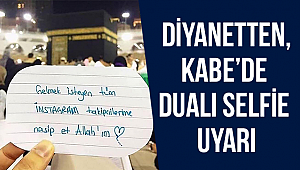 Gelmek isteyen tüm
İNSTAGRAM takipçilerime
nasip et Allah'ım
DİYANETTEN,
KABE'DE
DUALI SELFIE
UYARI